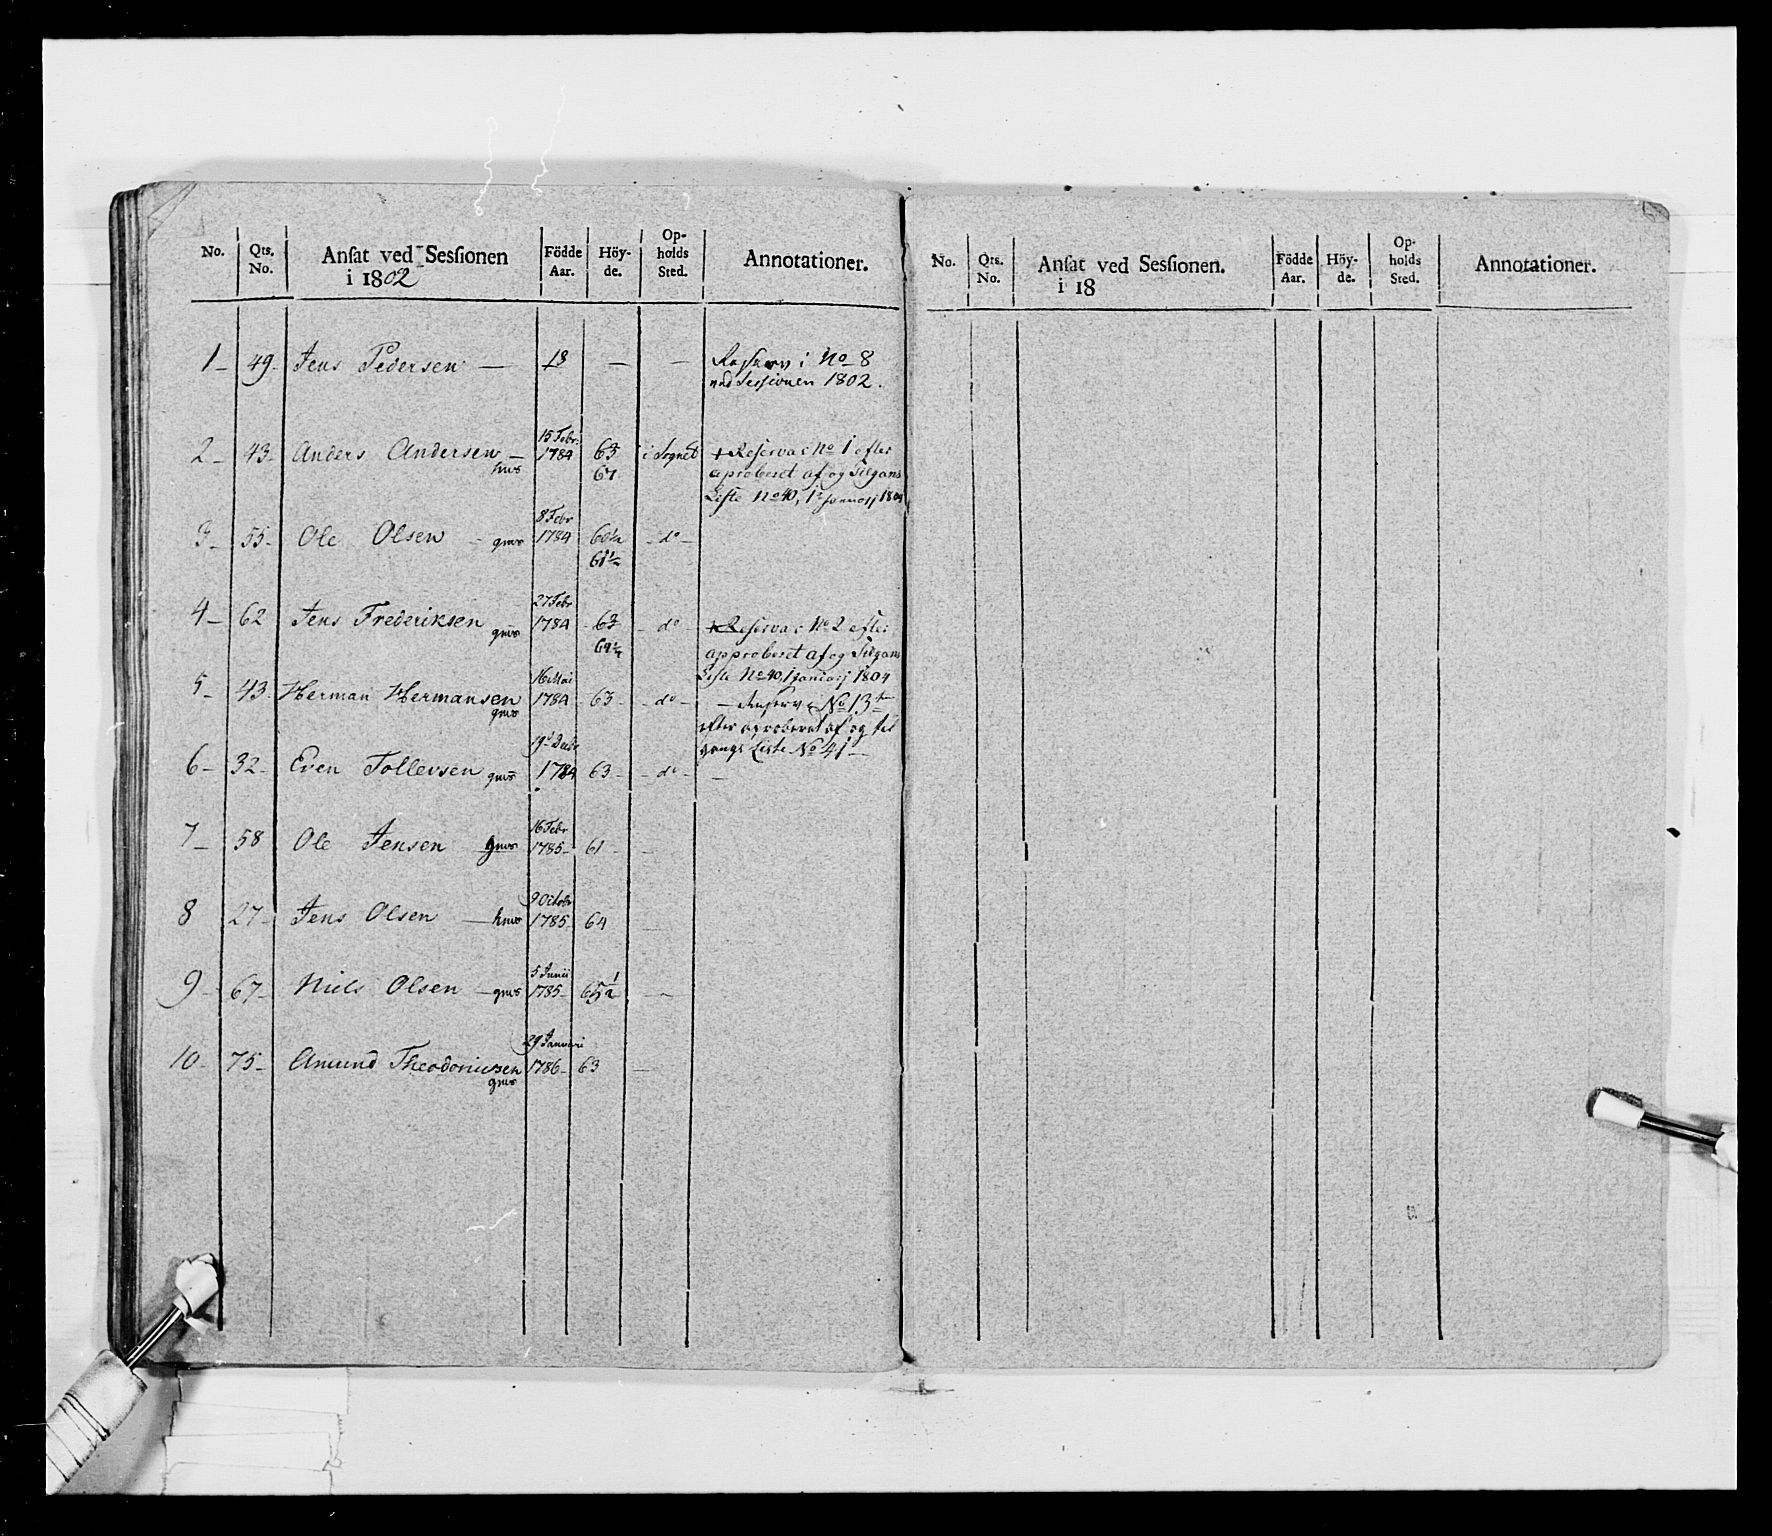 No. Qts. No. Ansat ved Sessionen i 1802 Födde Aar. Höyde. Opholds Sted. Annotationer.
1 - 49 - Jens Pedersen — 18 — — Reserv i No 8
ved Sessionen 1802.
15 Febr:
2 - 43 - Anders Andersen — 1784 63 i Sognet + Reserva: No 1 efter
hws 67 aproberet af og Tilgans
Liste No 40, 1 Januarj 1804
8 Febr
3 - 55 - Ole Olsen - gmws 1784 60½ - do -
61½
27 Febr
4 - 62 Jens Frederiksen 1784 - 63 - do - + Reserva: No 2 efter
gmws approberet af og Tilgans
Liste No 40, 1 Januarj 1804
16 Mai
5 - 43 - Herman Hermansen 1784 - 63 - - do - — Reserv No 13
gmws efter aproberet af og til
gangs Liste No 41 —
19 Decbr
6 - 32 - Even Tollevsen gmws 1784 63 - - do - —
16 Febr
7 - 58 Ole Jensen gmws 1785 - 61 - —
9 Octobr
8 27 - Jens Olsen — hws 1785 64 —
5 Junii
9 - 67 - Niels Olsen — gmws 1785 - 65½ - —
29 Januari
10 - 75 - Amund Theodoriusen 1786 - 63 —
gmws
No. Qts. No. Ansat ved Sessionen. i 18 Födde Aar. Höyde. Opholds Sted. Annotationer.